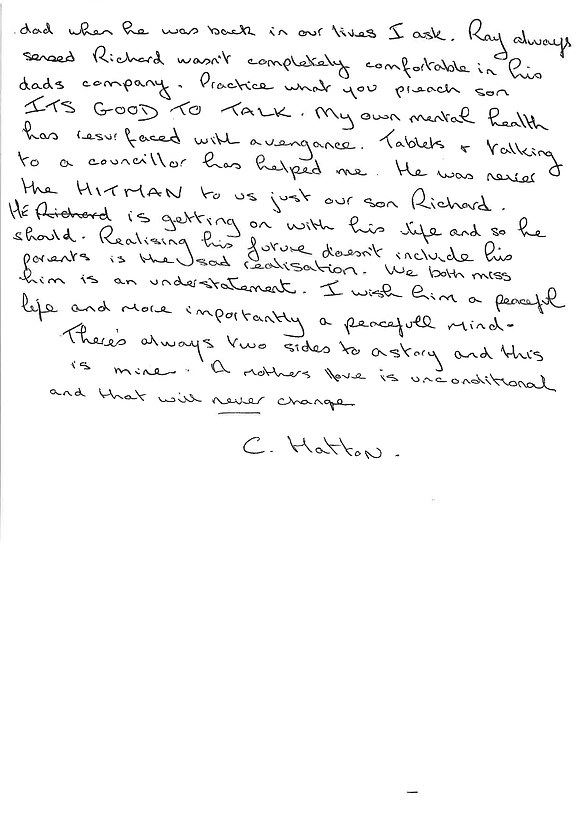 dad when he was back in our lives I ask. Ray always
sensed Richard wasn't completely comfortable in his
dads company. Practice what you preach son
ITS GOOD TO TALK. My own mental health
has resurfaced with avengance. Tablets + talking
to a councillor has helped me. He was never
the HITMAN to us just our son Richard.
HE Richard is getting on with his life and so he
should. Realising his future doesn't include his
parents is the sad realisation. We both miss
him is an understatement. I wish him a peaceful
life and more importantly a peacefull mind.
There's always two sides to a story and this
is mine. A mothers love is unconditional
and that will never change
C. Hatton.